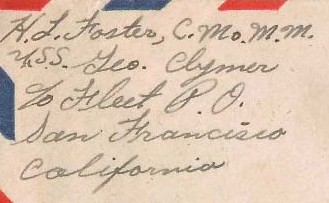 H. L. Foster, C. Mo. M. M.
U.S.S. Geo. Clymer
℅ Fleet P. O.
San Francisco
California